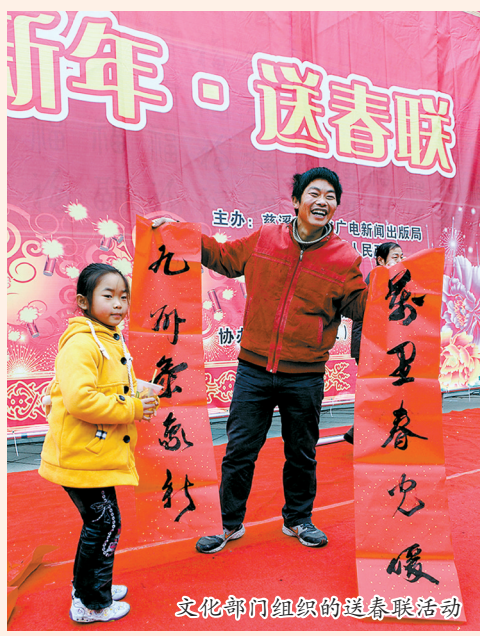 新年·送春联
主办：慈溪
广电新闻出版局
人民
协办
九州景象新
萬里春光暖
文化部门组织的送春联活动